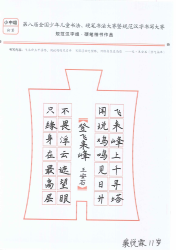 第八届全国少年儿童书法、硬笔书法大赛暨规范汉字书写大赛
规范汉字组·硬笔楷书作品
登飞来峰
王安石
飞来峰上千寻塔
闻说鸡鸣见日升
不畏浮云遮望眼
只缘身在最高层
11岁